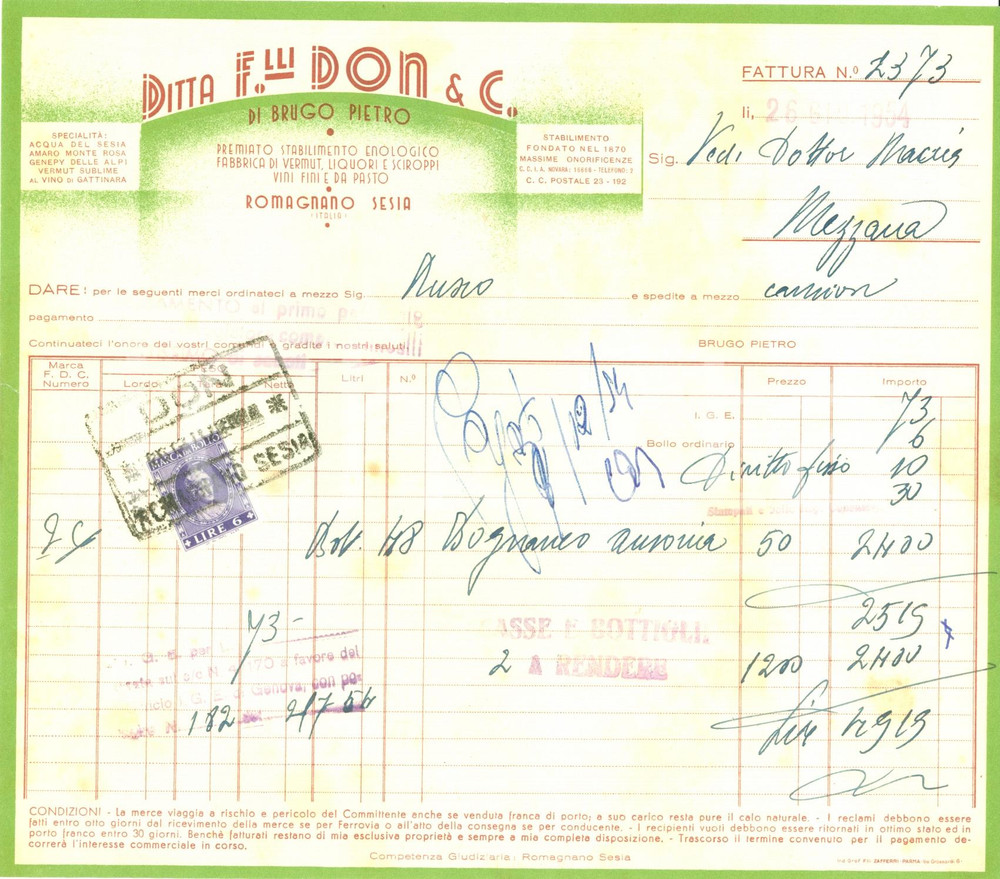 DITTA F.LLI DON & C.
DI BRUGO PIETRO
PREMIATO STABILIMENTO ENOLOGICO
FABBRICA DI VERMUT, LIQUORI E SCIROPPI
VINI FINI E DA PASTO
ROMAGNANO SESIA
- ITALIA -
SPECIALITÀ:
ACQUA DEL SESIA
AMARO MONTE ROSA
GENEPY DELLE ALPI
VERMUT SUBLIME
AL VINO DI GATTINARA
STABILIMENTO
FONDATO NEL 1870
MASSIME ONORIFICENZE
C. C. I. A. NOVARA: 15658 - TELEFONO: 2
C. C. POSTALE 23 - 192
FATTURA N.º 2373
li, 26 1954
Sig. Vedi Dottor
Mezzana
DARE: per le seguenti merci ordinateci a mezzo Sig. Russo e spedite a mezzo camion
pagamento
Continuateci l'onore dei vostri comandi e gradite i nostri saluti.
BRUGO PIETRO
Marca F. D. C. Numero Lordo Netto Litri N.º Prezzo Importo
I. G. E. 73
Bollo ordinario 6
Diritto fisso 10
30
DON
ROMAGNANO SESIA
MARCA DA BOLLO
LIRE 6
Pagato
/12/54
2 C Bott. 48 Bognanco ausonia 50 2400
2519
CASSE E BOTTIGLIE
2 A RENDERE 1200 2400
Lire 4919
73-
I. G. E. per L.
a favore del
I. G. E. Genova, con po-
N. 182 del 2/7 54
CONDIZIONI - La merce viaggia a rischio e pericolo del Committente anche se venduta franca di porto; a suo carico resta pure il calo naturale. - I reclami debbono essere
fatti entro otto giorni dal ricevimento della merce se per Ferrovia o all'atto della consegna se per conducente. - I recipienti vuoti debbono essere ritornati in ottimo stato ed in
porto franco entro 30 giorni. Benchè fatturati restano di mia esclusiva proprietà e sempre a mia completa disposizione. - Trascorso il termine convenuto per il pagamento de-
correrà l'interesse commerciale in corso.
Competenza Giudiziaria: Romagnano Sesia